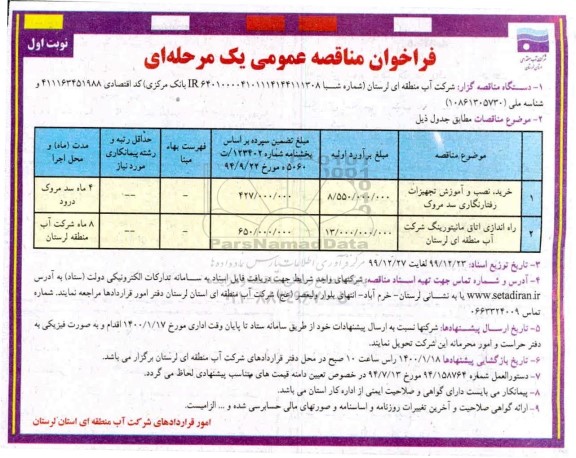 نوبت اول
فراخوان مناقصه عمومی یک مرحله‌ای
۱- دستگاه مناقصه گزار: شرکت آب منطقه ای لرستان (شماره شبا IR ۶۴۰۱۰۰۰۰۴۱۰۱۱۱۴۱۴۴۱۱۱۳۰۸ بانک مرکزی) کد اقتصادی ۴۱۱۱۶۳۴۵۱۹۸۸ و
شناسه ملی (۱۰۸۶۱۳۰۵۷۳۰)
۲- موضوع مناقصات مطابق جدول ذیل
موضوع مناقصه
مبلغ برآورد اولیه
مبلغ تضمین سپرده بر اساس بخشنامه شماره ۱۲۳۴۰۲/ت ۵۰۶۰ه مورخ ۹۴/۹/۲۲
فهرست بهاء مبنا
حداقل رتبه و رشته پیمانکاری مورد نیاز
مدت (ماه) و محل اجرا
۱ خرید، نصب و آموزش تجهیزات رفتارنگاری سد مروک ۸/۵۵۰/۰۰۰/۰۰۰ ۴۲۷/۰۰۰/۰۰۰ -- -- ۴ ماه سد مروک درود
۲ راه اندازی اتاق مانیتورینگ شرکت آب منطقه ای لرستان ۱۳/۰۰۰/۰۰۰/۰۰۰ ۶۵۰/۰۰۰/۰۰۰ -- -- ۸ ماه شرکت آب منطقه لرستان
ParsNamadData
۳- تاریخ توزیع اسناد: ۹۹/۱۲/۲۳ لغایت ۹۹/۱۲/۲۷
۴- آدرس و شماره تماس جهت تهیه اسناد مناقصه: شرکتهای واجد شرایط جهت دریافت فایل اسناد به سامانه تدارکات الکترونیکی دولت (ستاد) به آدرس
www.setadiran.ir یا به نشانی لرستان- خرم آباد- انتهای بلوار ولیعصر (عج) شرکت آب منطقه ای استان لرستان دفتر امور قراردادها مراجعه نمایند. شماره
تماس ۰۶۶۳۳۲۴۰۰۹
۵- تاریخ ارسال پیشنهادها: شرکتها نسبت به ارسال پیشنهادات خود از طریق سامانه ستاد تا پایان وقت اداری مورخ ۱۴۰۰/۱/۱۷ اقدام و به صورت فیزیکی به
دفتر حراست و امور محرمانه این شرکت تحویل نمایند.
۶- تاریخ بازگشایی پیشنهادها: ۱۴۰۰/۱/۱۸ راس ساعت ۱۰ صبح در محل دفتر قراردادهای شرکت آب منطقه ای لرستان برگزار می باشد.
۷- دستورالعمل شماره ۹۴/۱۵۸۷۶۴ مورخ ۹۴/۷/۱۳ در خصوص تعیین دامنه قیمت های متناسب پیشنهادی لحاظ می گردد.
۸- پیمانکار می بایست دارای گواهی و صلاحیت ایمنی از اداره کار استان می باشد.
۹- ارائه گواهی صلاحیت و آخرین تغییرات روزنامه و اساسنامه و صورتهای مالی حسابرسی شده و ... الزامیست.
امور قراردادهای شرکت آب منطقه ای استان لرستان